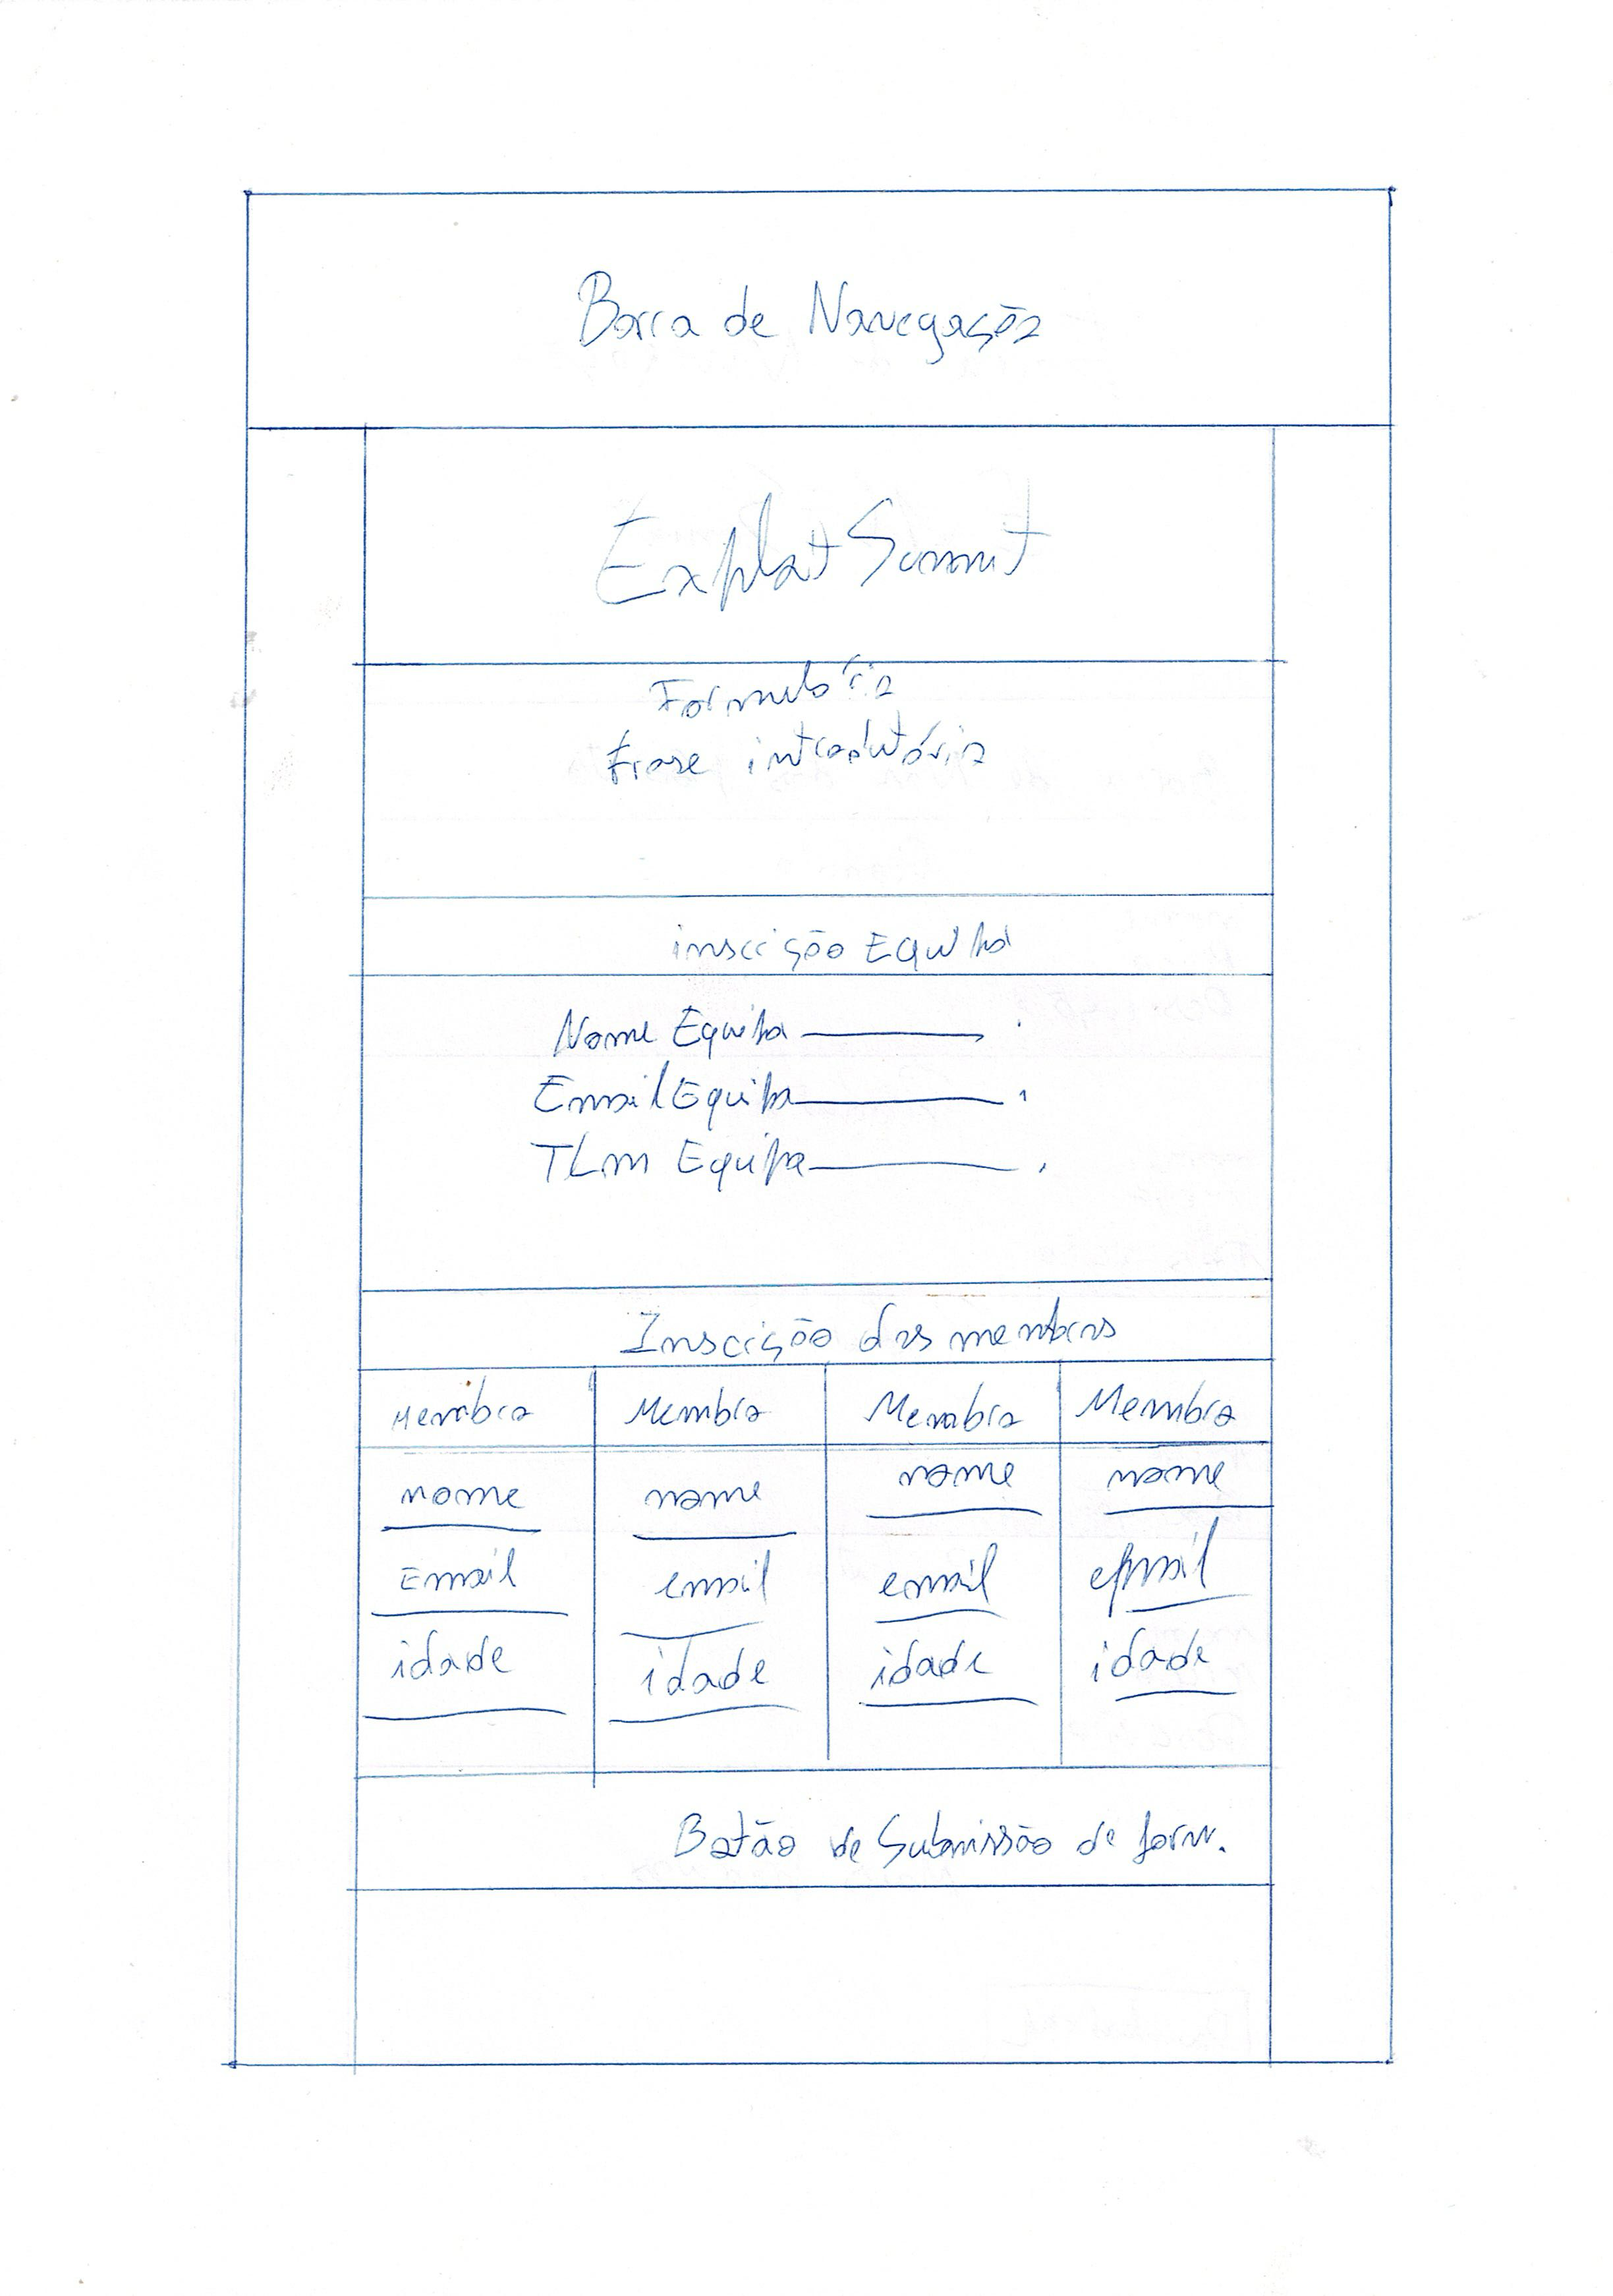 Barra de Navegação
Exploit Summit
Formulário
frase introdutória
inscrição Equipa
Nome Equipa
Email Equipa
TLm Equipa
Inscrição dos membros
Membro Membro Membro Membro
nome name nome nome
Email email email email
idade idade idade idade
Botão de Submissão de form.